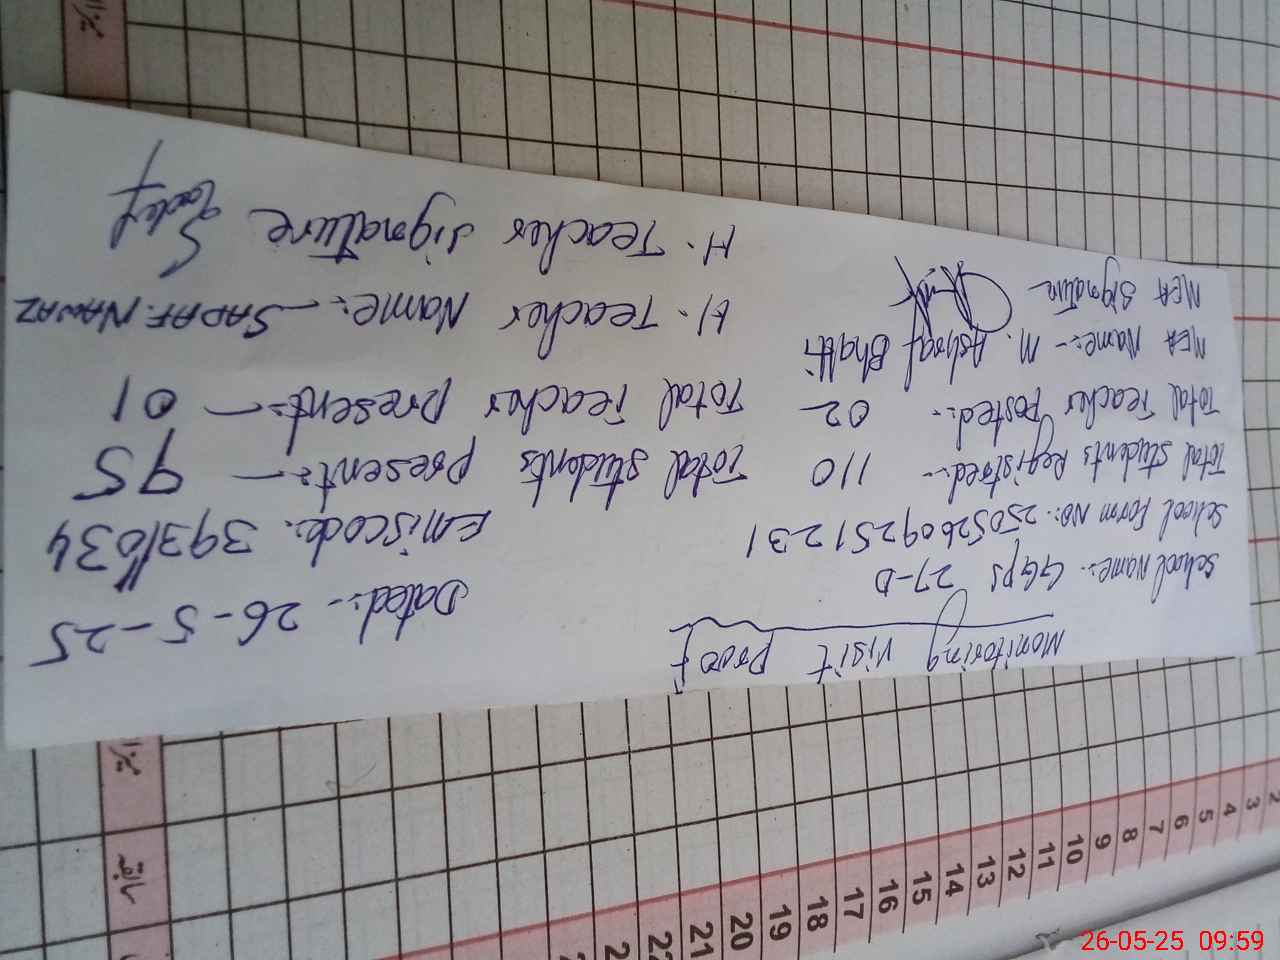 Monitoring Visit Proof
Dated:- 26-5-25
School Name:- GGPS 27-D
Emiscode:- 3931034
School Form No:- 2505260925 1231
Total Students Registred:- 110 Total Students present:- 95
Total Teacher Posted:- 02 Total Teacher present:- 01
MEA Name:- M. Ashraf Bhatti
H. Teacher Name:- SADAF NAWAZ
MEA Signature
H. Teacher Signature Sadaf
باقی
2 3 4 5 6 7 8 9 10 11 12 13 14 15 16 17 18 19 20 21 22
26-05-25 09:59